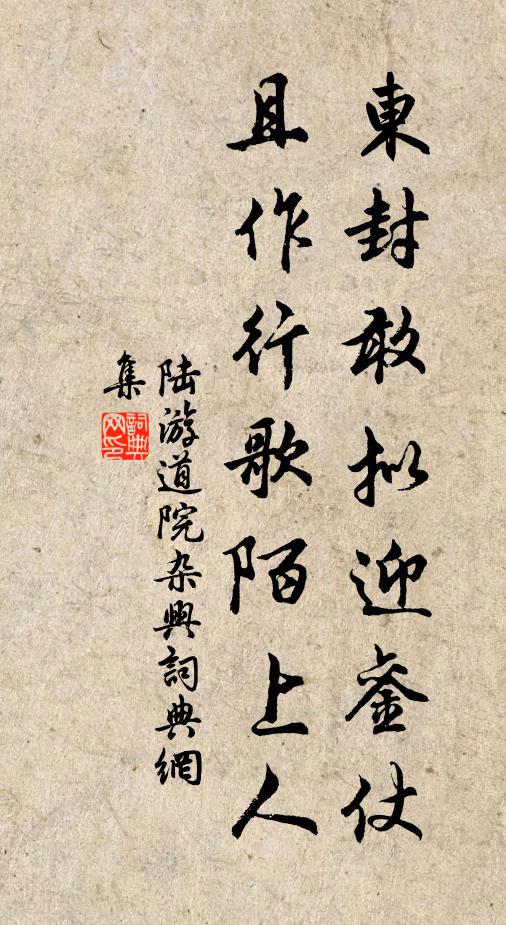 東封敢拟迎銮仗
且作行歌陌上人
陆游道院杂興詞典網
集
詞典網印